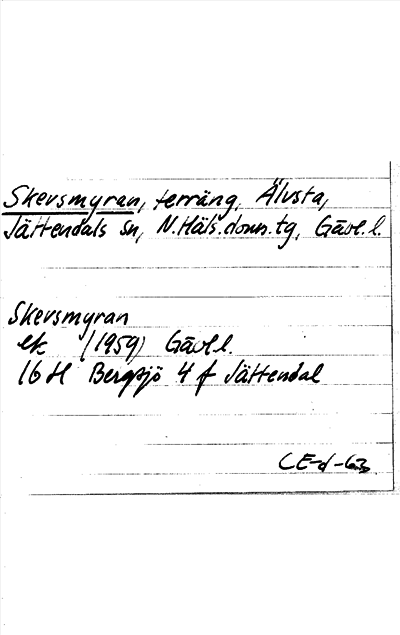 Skersmyran, terräng, Älvsta,
Jättendals sn, N.Häls.doms.tg, Gävl.l.
Skersmyran
ek (1959) Gävl.l.
16 H Bergsjö 4 f Jättendal
CE-d-63